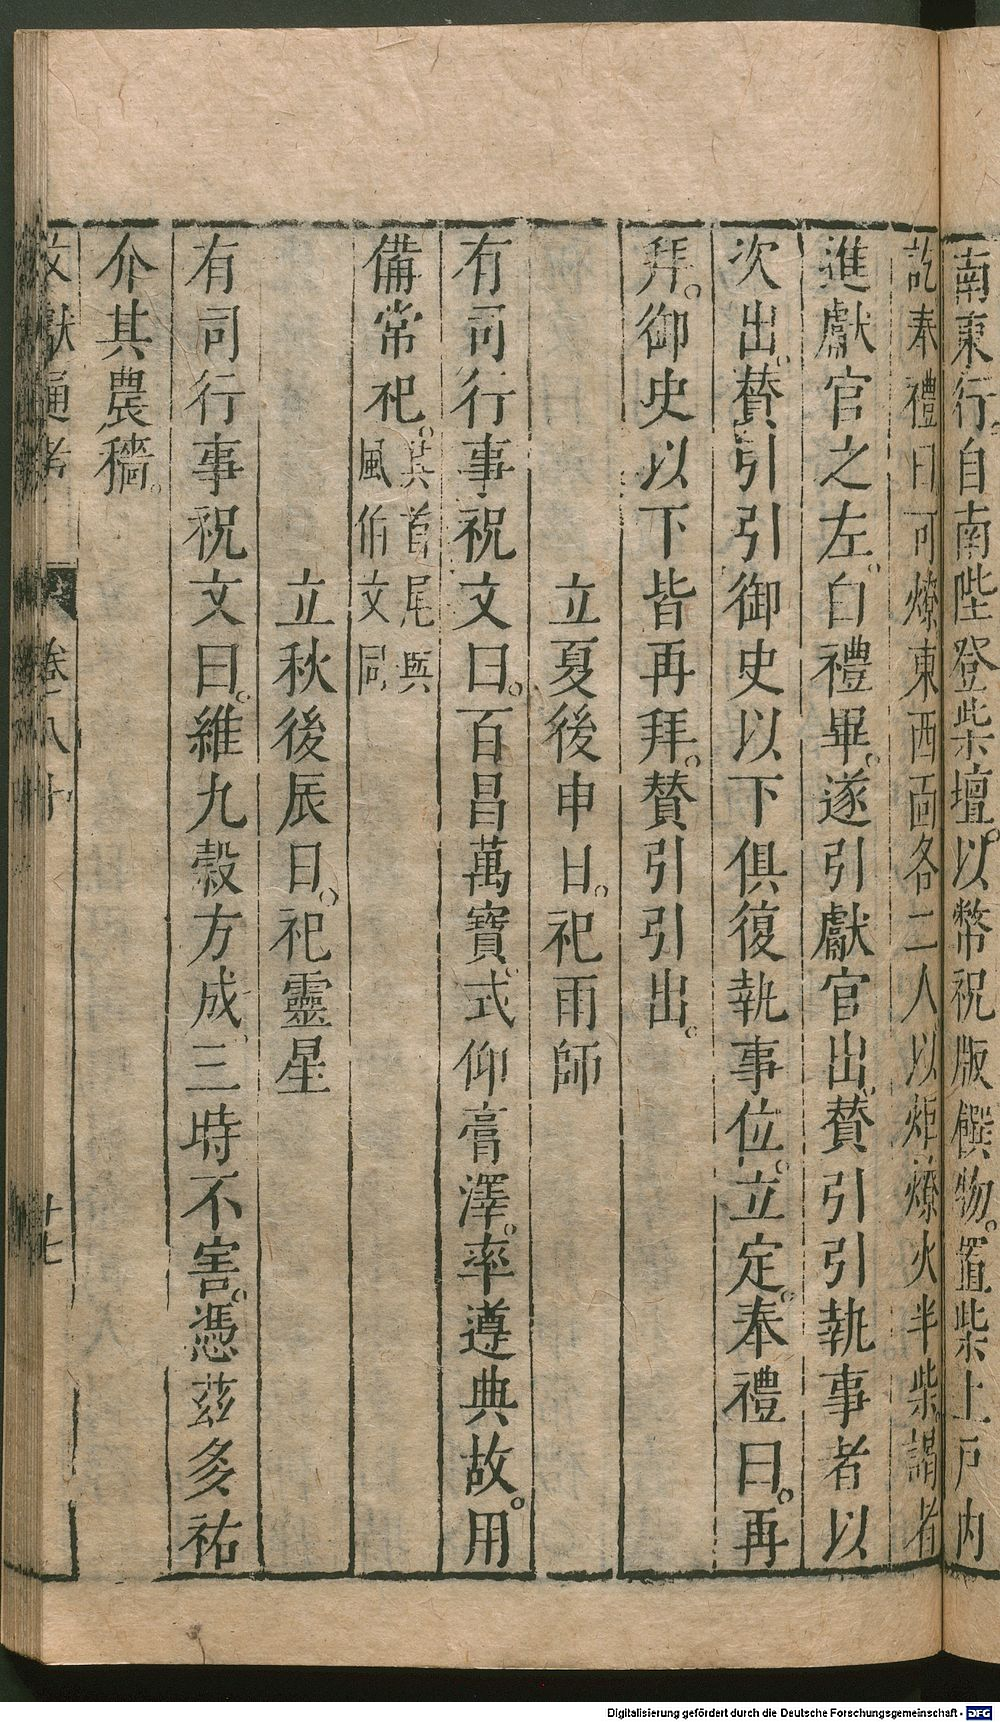 南東行自南陛登柴壇以幣祝版饌物置柴上戸内
訖奉禮曰可燎東西靣各二人以炬燎火半柴謁者
進獻官之左白禮畢遂引獻官出賛引引執事者以
次出賛引引御史以下俱復執事位立定奉禮曰再
拜御史以下皆再拜賛引引出
立夏後申日祀雨師
有司行事祝文曰百昌萬寶式仰膏澤率遵典故用
備常祀其首尾與
風伯文同
立秋後辰日祀靈星
有司行事祝文曰維九穀方成三時不害憑茲多祐
介其農穡
文獻通考 卷八十 十七
Digitalisierung gefördert durch die Deutsche Forschungsgemeinschaft - DFG